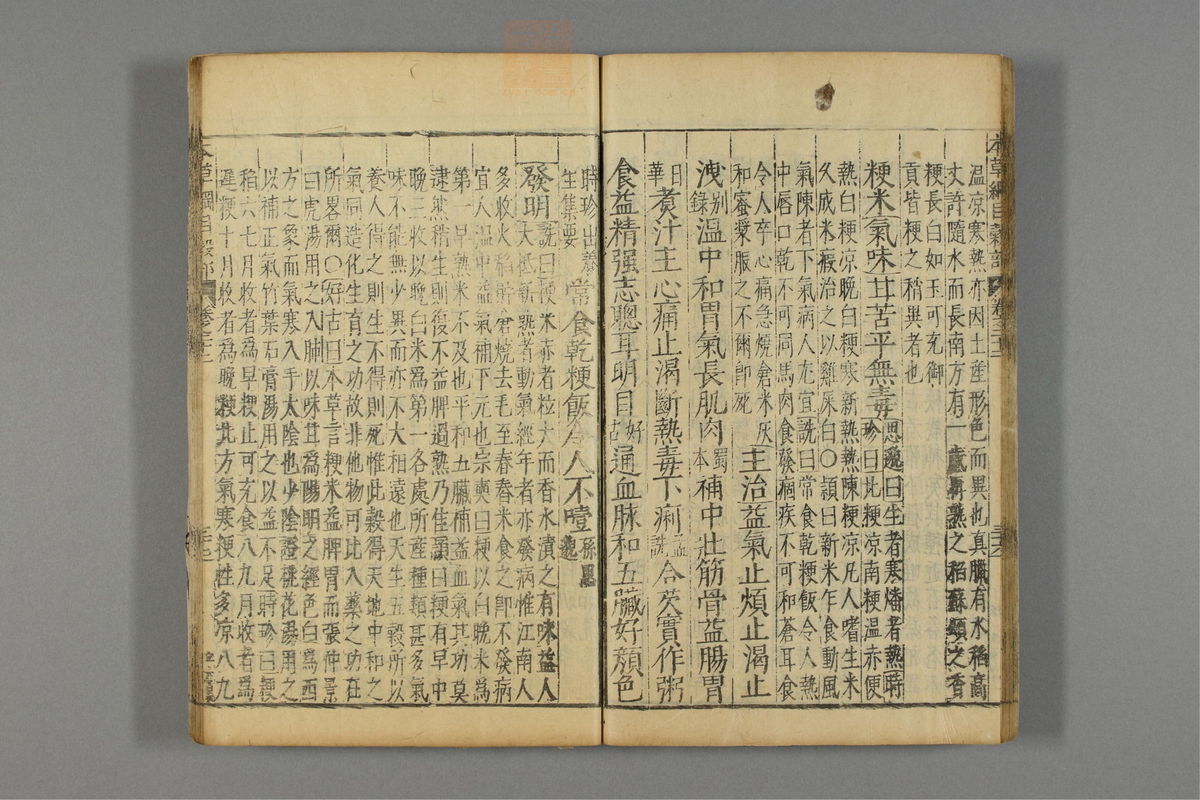 本草綱目穀部 卷之二十二
溫凉寒熱亦因土產形色而異也真臘有水稻高
丈許隨水而長南方有一歲再熟之稻蘇頌之香
粳長白如玉可充御
貢皆粳之稍異者也
粳米氣味甘苦平無毒思邈曰生者寒燔者熱時
珍曰北粳凉南粳溫赤粳
熱白粳凉晚白粳寒新粳熱陳粳凉凡人嗜生米
久成米瘕治之以雞屎白○頴曰新米乍食動風
氣陳者下氣病人尤宜詵曰常食乾粳飯令人熱
中唇口乾不可同馬肉食發痼疾不可和蒼耳食
令人卒心痛急燒倉米灰
和蜜漿服之不爾卽死
主治益氣止煩止渴止
洩別錄溫中和胃氣長肌肉蜀本補中壯筋骨益腸胃
日華煑汁主心痛止渴斷熱毒下痢孟詵合芡實作粥
食益精强志聰耳明目好古通血脉和五臟好顏色
時珍出養
生集要
常食乾粳飯令人不噎孫思邈
發明詵曰粳米赤者粒大而香水漬之有味益人
大抵新熟者動氣經年者亦發病惟江南人
多收火稻貯倉燒去毛至春舂米食之卽不發病
宜人溫中益氣補下元也宗奭曰粳以白晚米爲
第一早熟米不及也平和五臟補益血氣其功莫
逮然稍生則復不益脾過熟乃佳頴曰粳有早中
晚三收以晚白米爲第一各處所產種類甚多氣
味不能無少異而亦不大相遠也天生五穀所以
養人得之則生不得則死惟此穀得天地中和之
氣同造化生育之功故非他物可比入藥之功在
所畧爾○好古曰本草言粳米益脾胃而張仲景
白虎湯用之入肺以味甘爲陽明之經色白爲西
方之象而氣寒入手太陰也少陰證桃花湯用之
以補正氣竹葉石膏湯用之以益不足時珍曰粳
稻六七月收者爲早粳止可充食八九月收者爲
遲粳十月收者爲晚粳北方氣寒粳性多凉八九
本草綱目穀部 卷之二十二